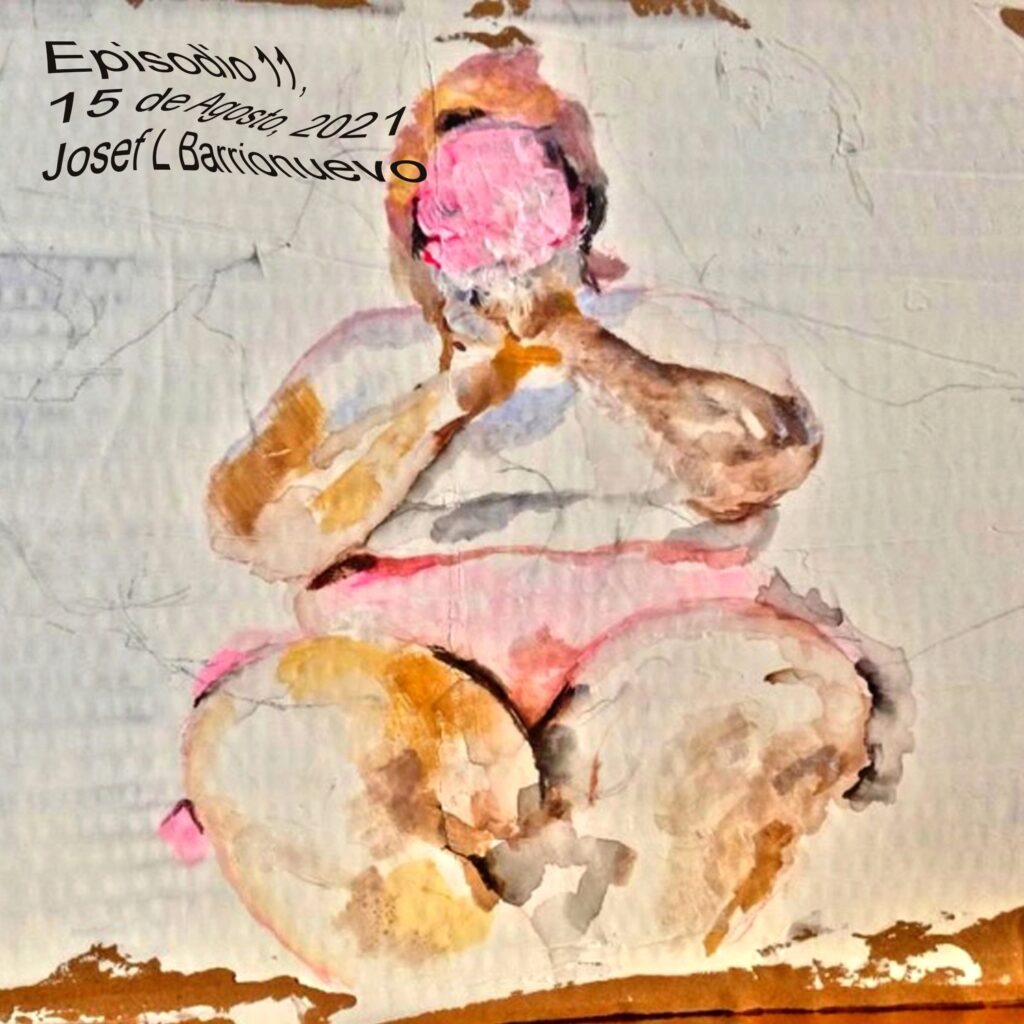 Episodio 11,
15 de Agosto, 2021
Josef L Barrionuevo